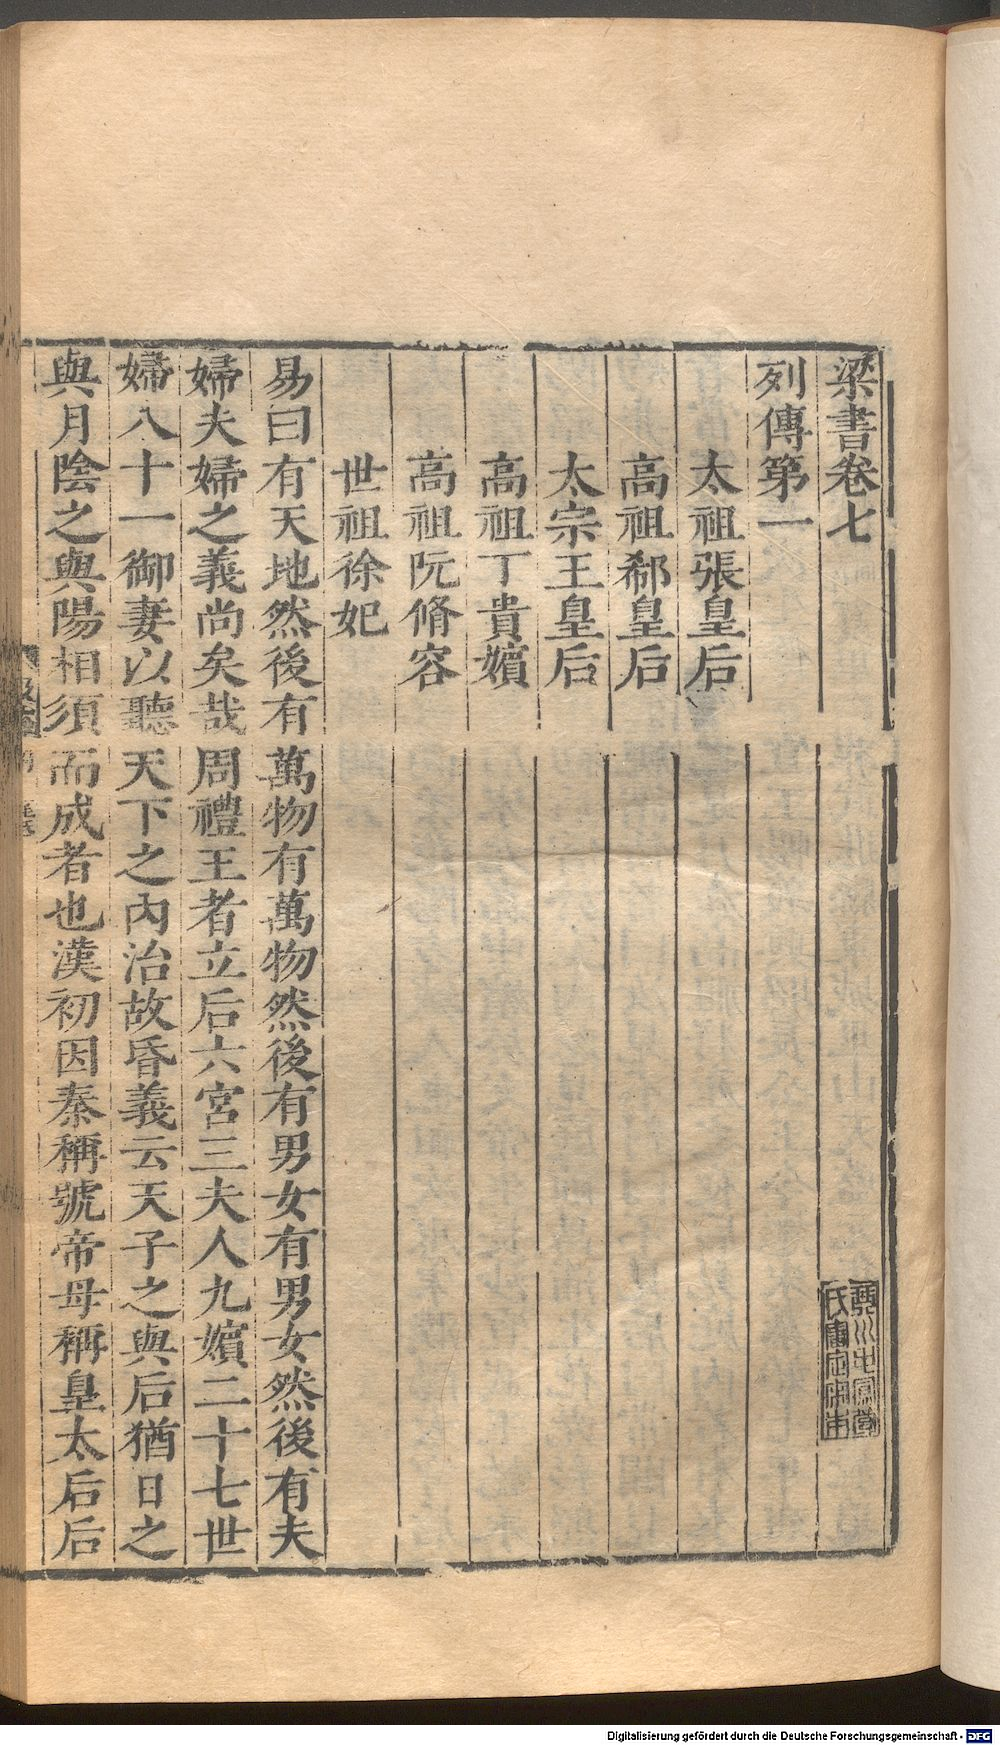 梁書卷七
列傳第一
太祖張皇后
高祖郗皇后
太宗王皇后
高祖丁貴嬪
高祖阮脩容
世祖徐妃
易曰有天地然後有萬物有萬物然後有男女有男女然後有夫
婦夫婦之義尚矣哉周禮王者立后六宮三夫人九嬪二十七世
婦八十一御妻以聽天下之內治故昏義云天子之與后猶日之
與月陰之與陽相須而成者也漢初因秦稱號帝母稱皇太后后
Digitalisierung gefördert durch die Deutsche Forschungsgemeinschaft - DFG